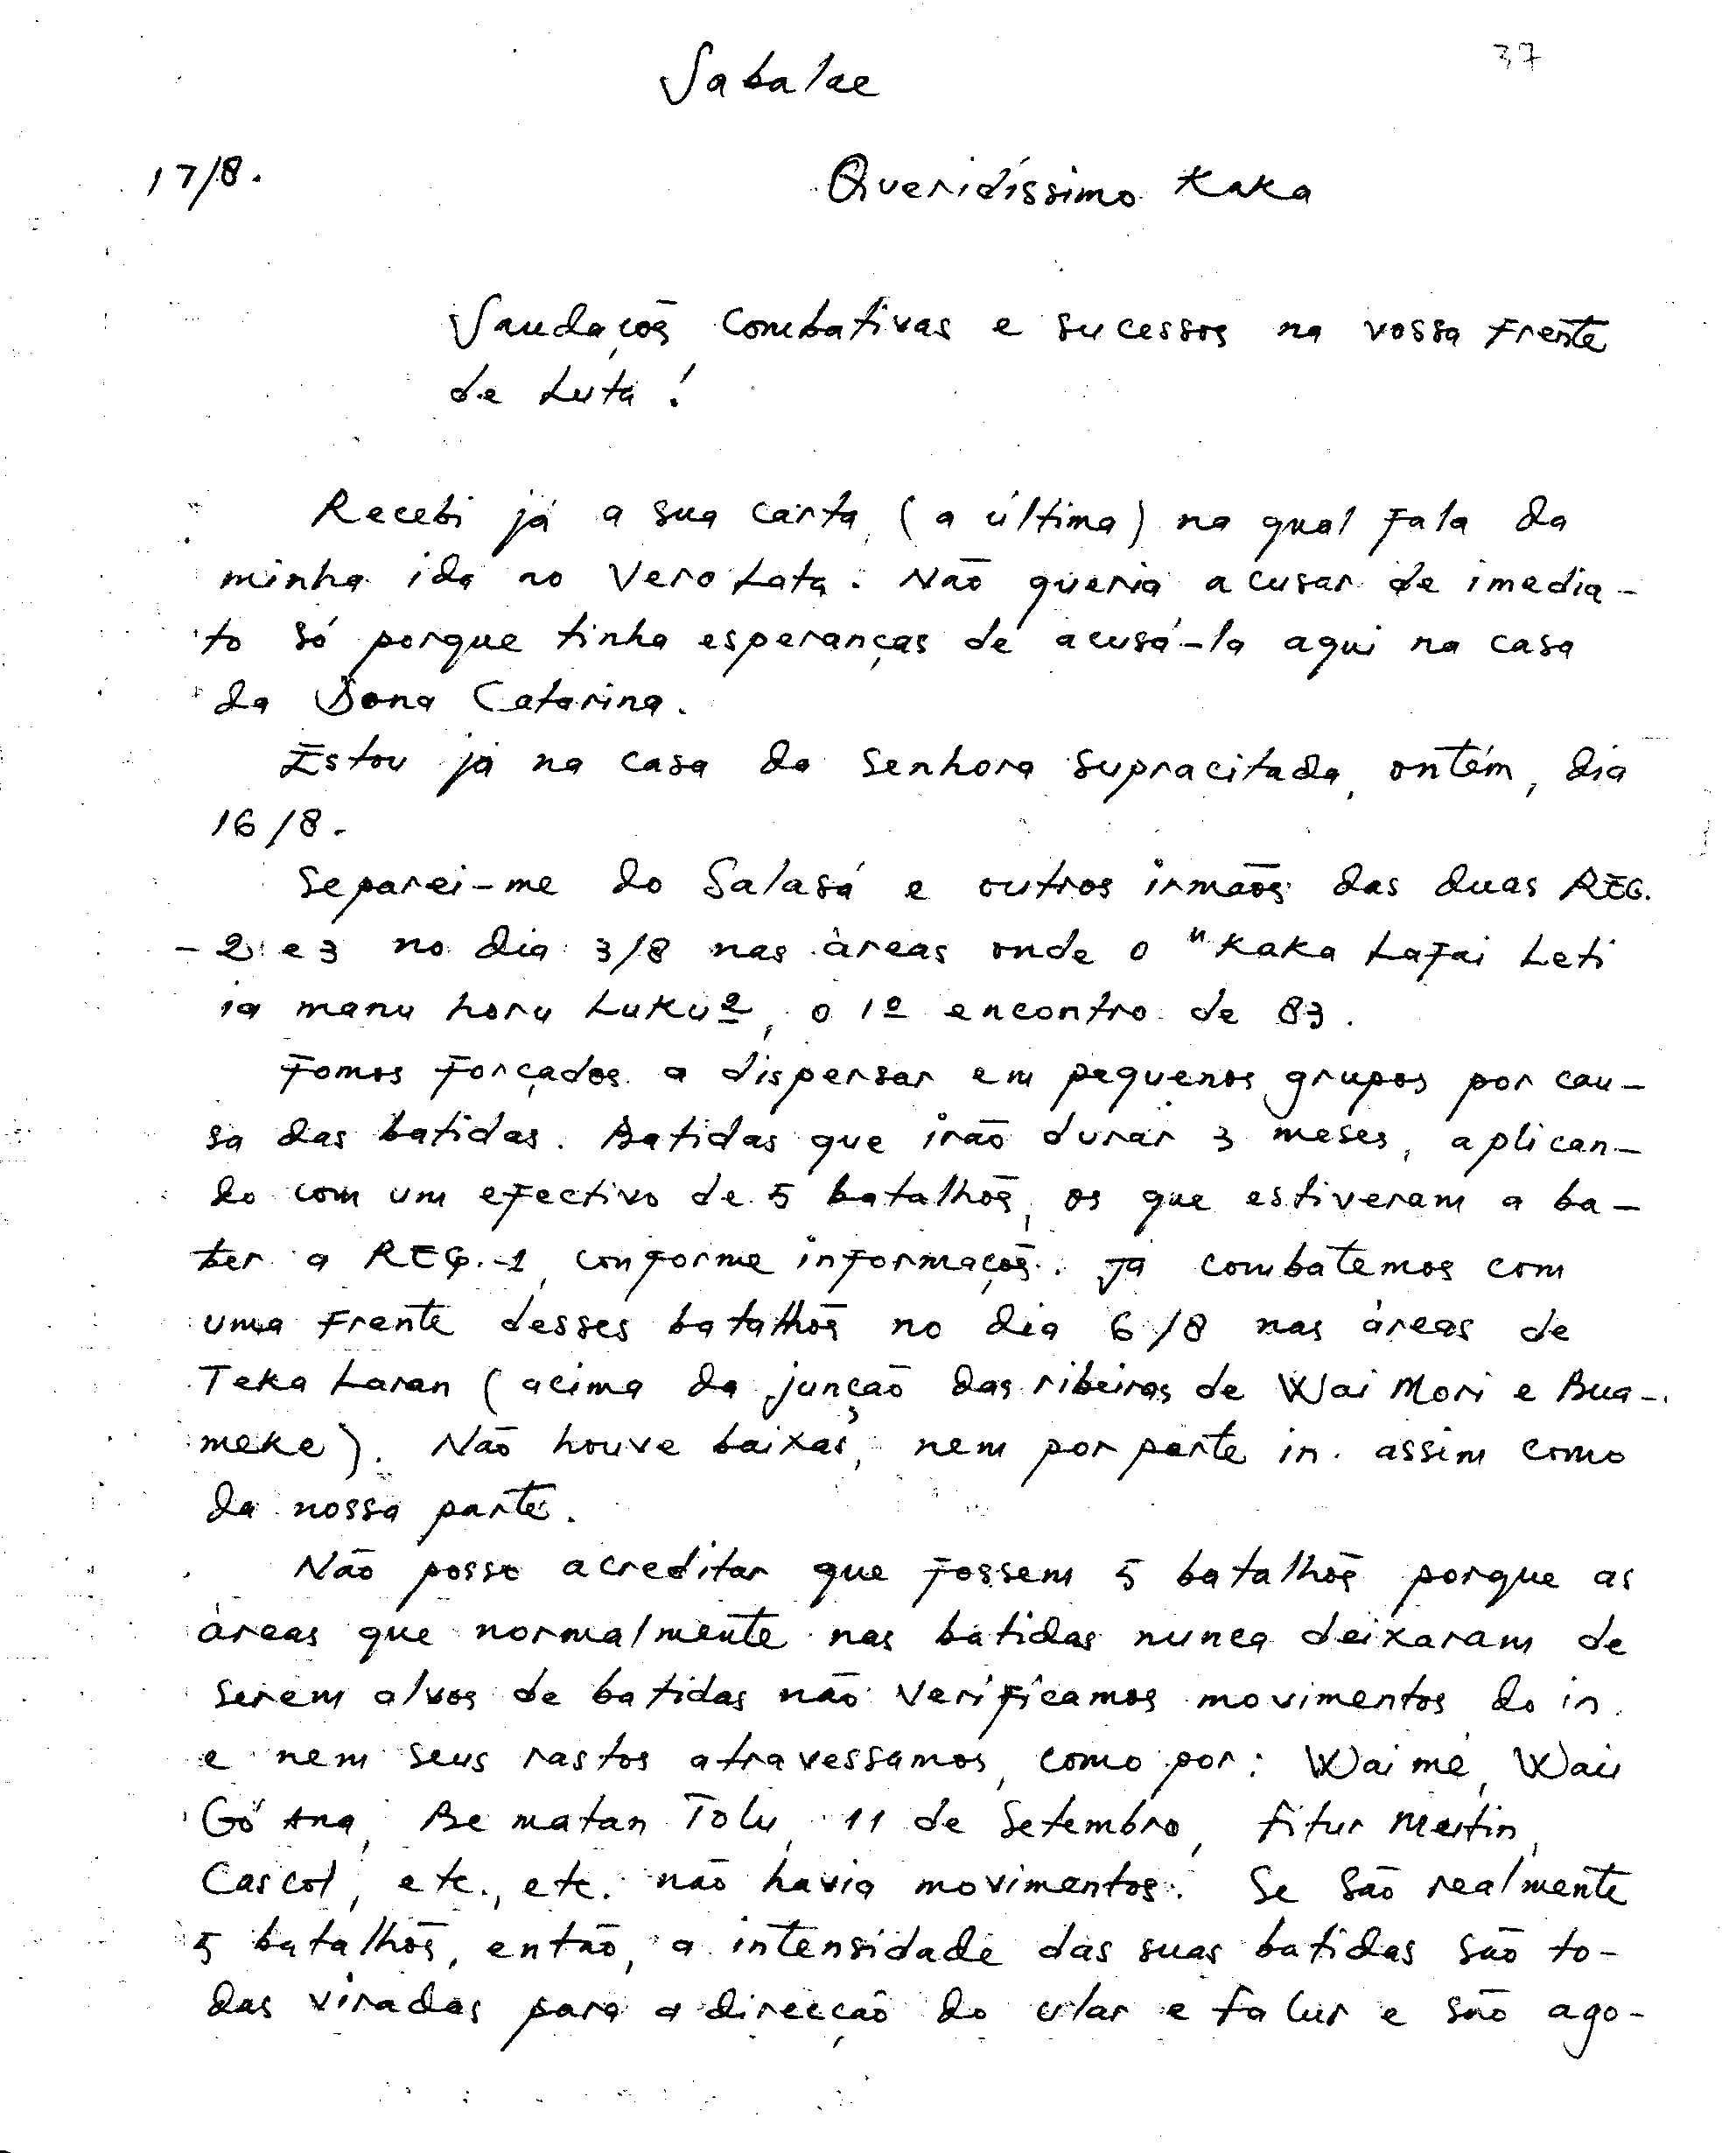 37
Sabalae
17/8.
Queridíssimo Kaka
Saudaçoẽs combativas e sucessos na vossa Frente
de Luta!
Recebi já a sua carta (a última) na qual fala da
minha ida ao Vero Lata. Não queria acusar de imedia-
to só porque tinha esperanças de acusá-la aqui na casa
da Dona Catarina.
Estou já na casa da Senhora supracitada, ontém, dia
16/8.
Separei-me do Salasá e outros irmãos das duas REG.
-2 e 3 no dia 3/8 nas àreas onde o "Kaka Lafai Leti
ia manu horu Luku", o 1º encontro de 83.
Fomos forçados a dispersar em pequenos grupos por cau-
sa das batidas. Batidas que irão durar 3 meses, aplican-
do com um efectivo de 5 batalhoẽs, os que estiveram a ba-
ter a REG.-1, conforme informaçoẽs. Já combatemos com
uma Frente desses batalhoẽs no dia 6/8 nas àreas de
Teka Laran (acima da junção das ribeiras de Wai Mori e Bua-
meke). Não houve baixas, nem por parte in. assim como
da nossa parte.
Não posso acreditar que fossem 5 batalhoẽs porque as
àreas que normalmente nas batidas nunca deixaram de
serem alvos de batidas não verificamos movimentos do in.
e nem seus rastos atravessamos, como por: Wai mé, Wai
Gó Ana, Be matan Tolu, 11 de Setembro, Fitur Meitin,
Cascol, etc., etc. não havia movimentos. Se são realmente
5 batalhoẽs, então, a intensidade das suas batidas são to-
das viradas para a direcção do Ular e Falur e são ago-